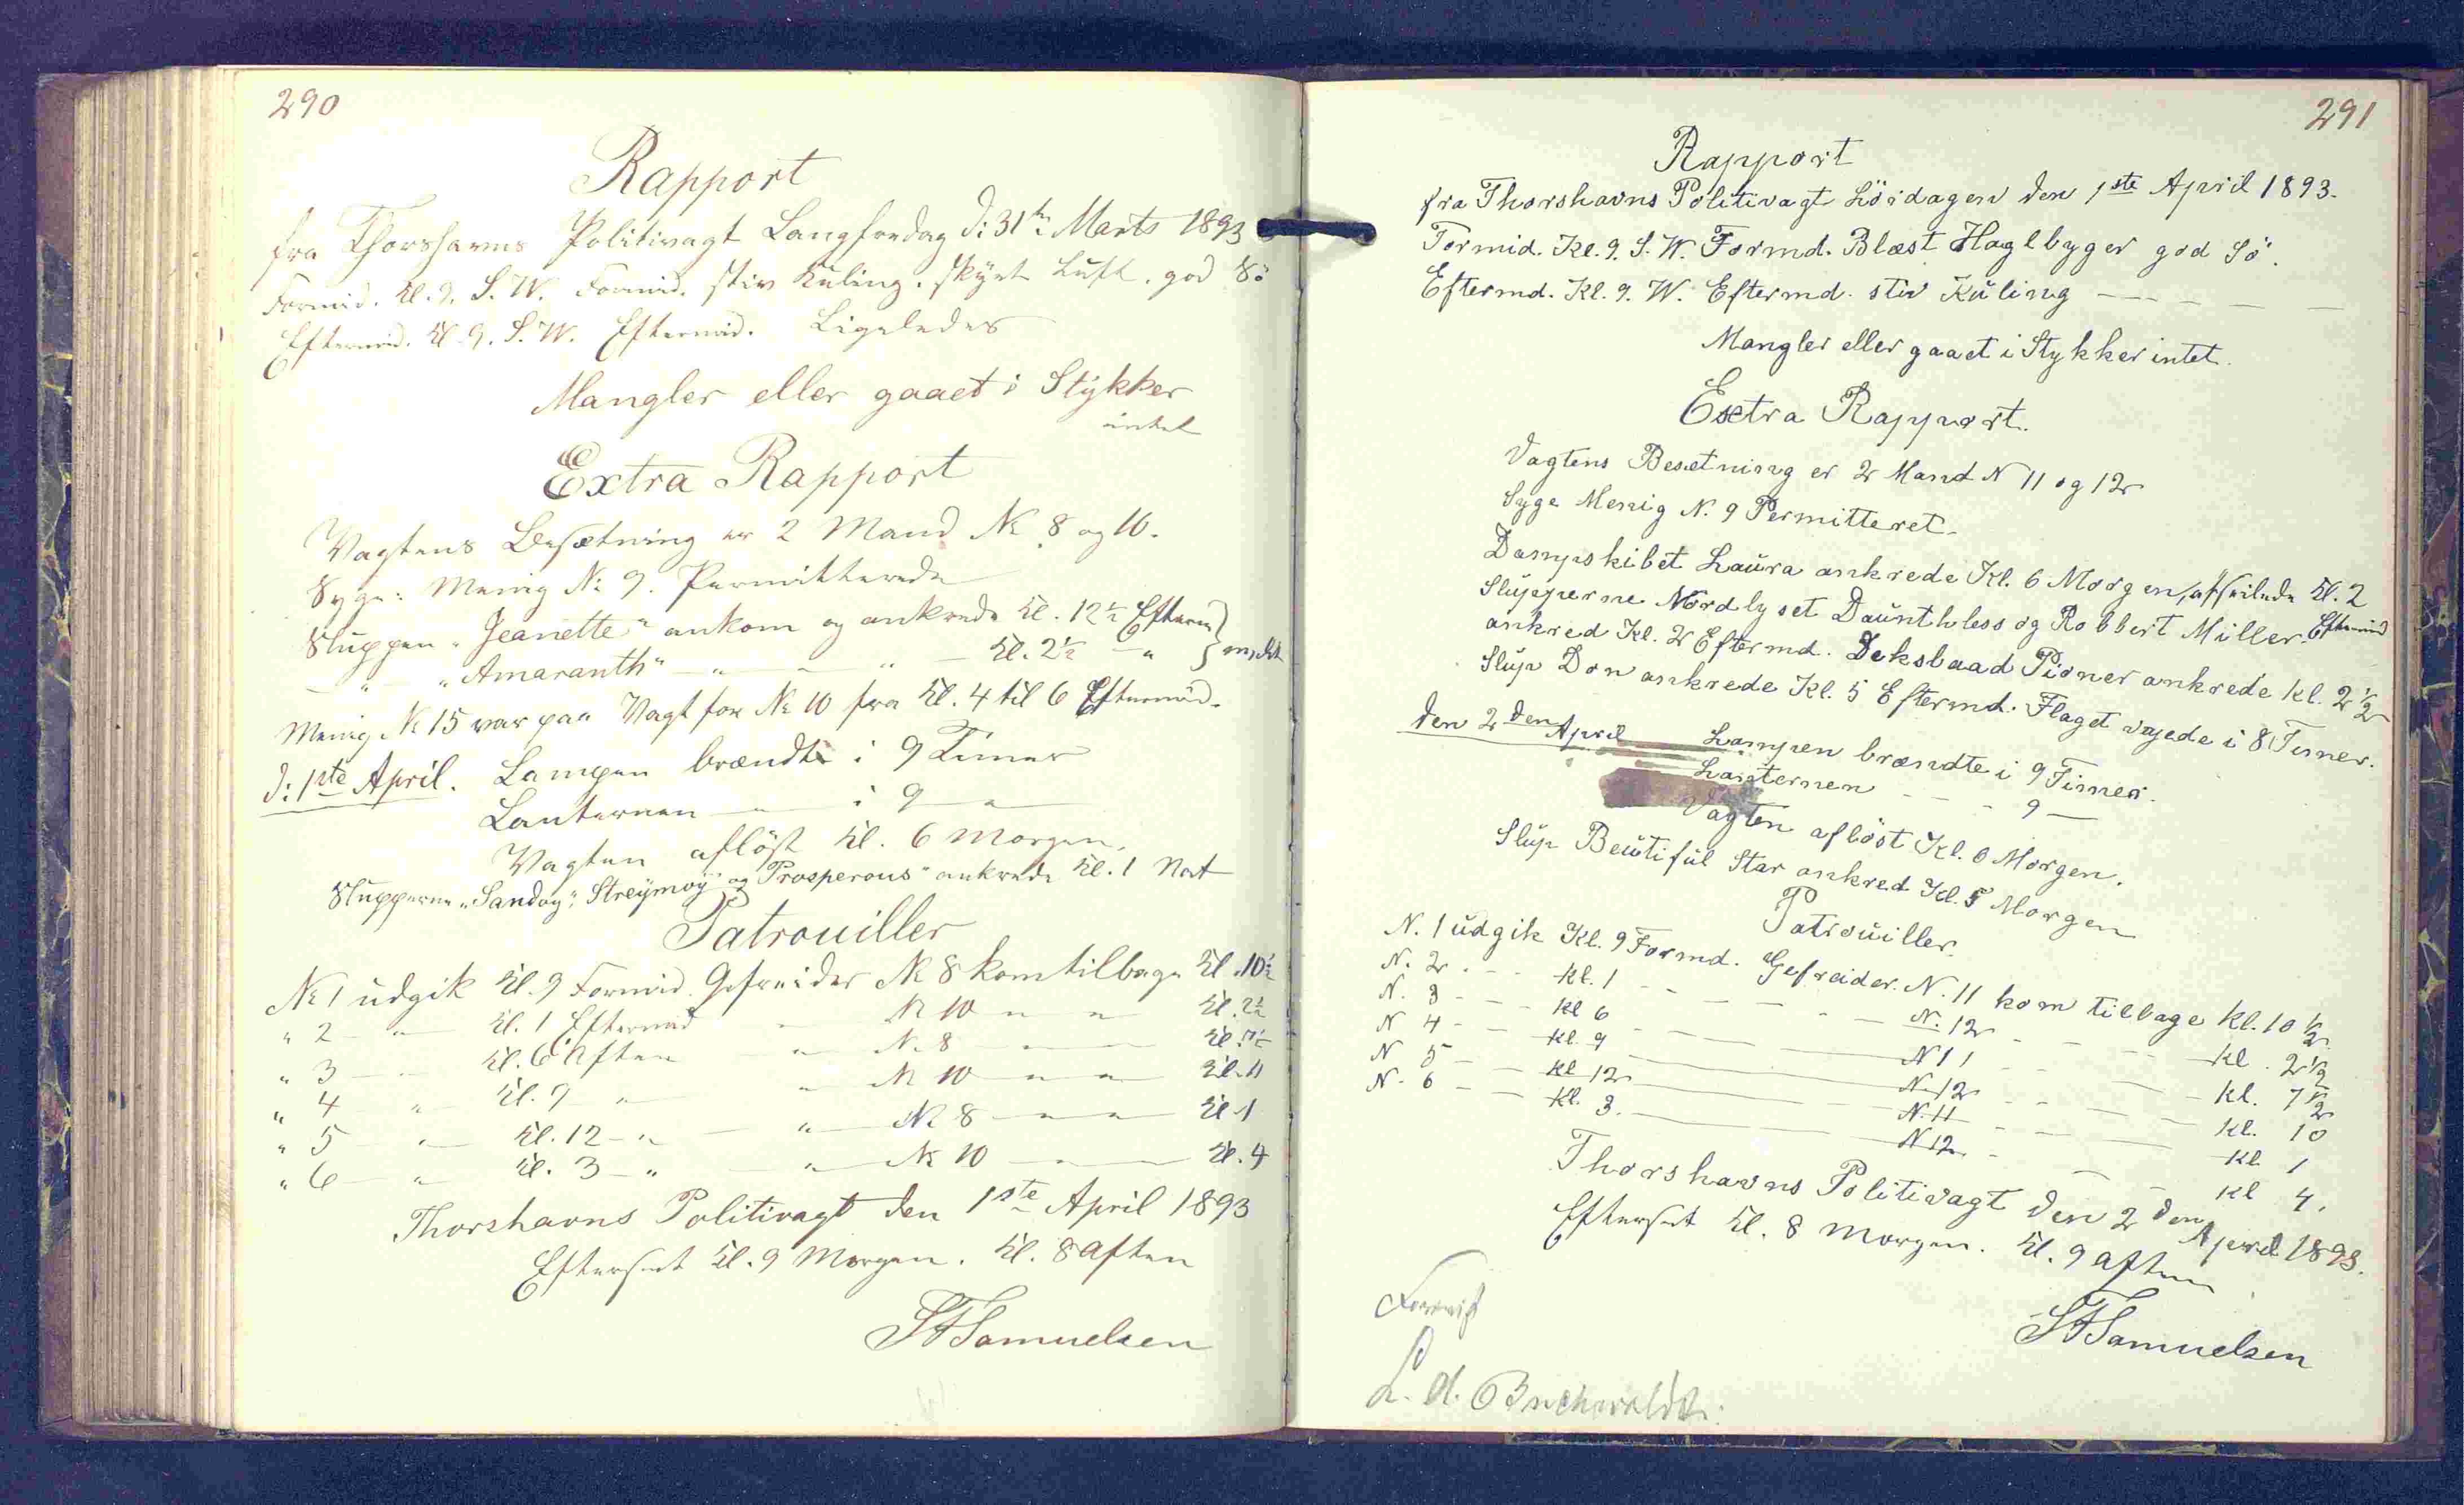 290
Rapport
fra Thorshavns Politivagt Langfredag d: 31te Marts 1893
Formid. Kl. 9. S. W. Formid. stiv Kuling. skyet Luft. god Sö
Eftermid. Kl. 9. S. W. Eftermid. Ligeledes
Mangler eller gaaet i Stykker
intet
Extra Rapport
Vagtens Besætning er 2 Mand № 8 og 10.
Syge: Menig №: 9. Permitterede
Sluppen „Jeanette" ankom og ankrede Kl. 12½ Efterm
— " — „Amaranth" — " — " — Kl. 2½ — "
Menig № 15 var paa Vagt for № 10 fra Kl. 4 til 6 Eftermid.
d: 1ste April. Lampen brændte i 9 Timer
Lanternen — " — i 9 — "
Vagten aflöst Kl. 6 Morgen.
Slupperne „Sandoy", Streymoy" og Prosperous" ankrede Kl. 1 Nat
Patrouiller
№ 1 udgik Kl. 9 Formid. Gefreider № 8 kom tilbage Kl. 10½
" 2 — " — Kl. 1 Eftermid — " № 10 — " — " — Kl. 2½
" 3 — " Kl. 6 Aften — " — № 8 — " — Kl. 7½
" 4 " Kl. 9 — " — " — № 10 — " — " — Kl. 11
" 5 " — Kl. 12 — " — " — № 8 — " — " — Kl. 1
" 6 — " — Kl. 3 — " — " — № 10 — " — Kl. 4
Thorshavns Politivagt den 1ste April 1893
Efterset Kl. 9 Morgen. Kl. 8 Aften
Samuelsen
291
Rapport
fra Thorshavns Politivagt Löedagen den 1ste April 1893.
Formid. Kl. 9. S. W. Formd. Blæst Haglbyger god Sö.
Eftermd. Kl. 9. W. Eftermd. stiv Kuling — — — —
Mangler eller gaaet i Stykker intet.
Extra Rapport.
Vagtens Besætning er 2 Mand N 11 og 12
Syge Menig N. 9 Permitteret.
Dampskibet Laura ankrede Kl. 6 Morgen, afseilede Kl. 2 Eftermid
Slupperne Nordlyset Daunthless og Robbert Miller
ankred Kl. 2 Eftermd. Deksbaad Pioner ankrede Kl. 2½
Slup Don ankrede Kl. 5 Eftermd. Flaget vajede i 8 Timer.
den 2den April Lampen brændte i 9 Timer.
Lanternen — — - 9 —
Vagten aflöst Kl. 6 Morgen.
Slup Beutiful Star ankred Kl. 5 Morgen
Patrouiller.
N. 1 udgik Kl. 9 Formd. Gefreider. N. 11 kom tilbage Kl. 10½
N. 2 . - - Kl. 1 - — — - — N. 12 - - — Kl. 2½
N. 3 - - - Kl 6 - — — — N 11 - - — Kl. 7½
N 4 - - - Kl. 9 — — — N. 12 - - — Kl. 10
N 5 - - Kl 12 — — — N. 11 - - — Kl 1
N. 6 - - - Kl. 3. — — — N 12 - — - Kl 4.
Thorshavns Politivagt den 2den April 1893.
Efterset Kl. 8 Morgen. Kl. 9 Aften
Samuelsen
Forevist
Buchwaldt.